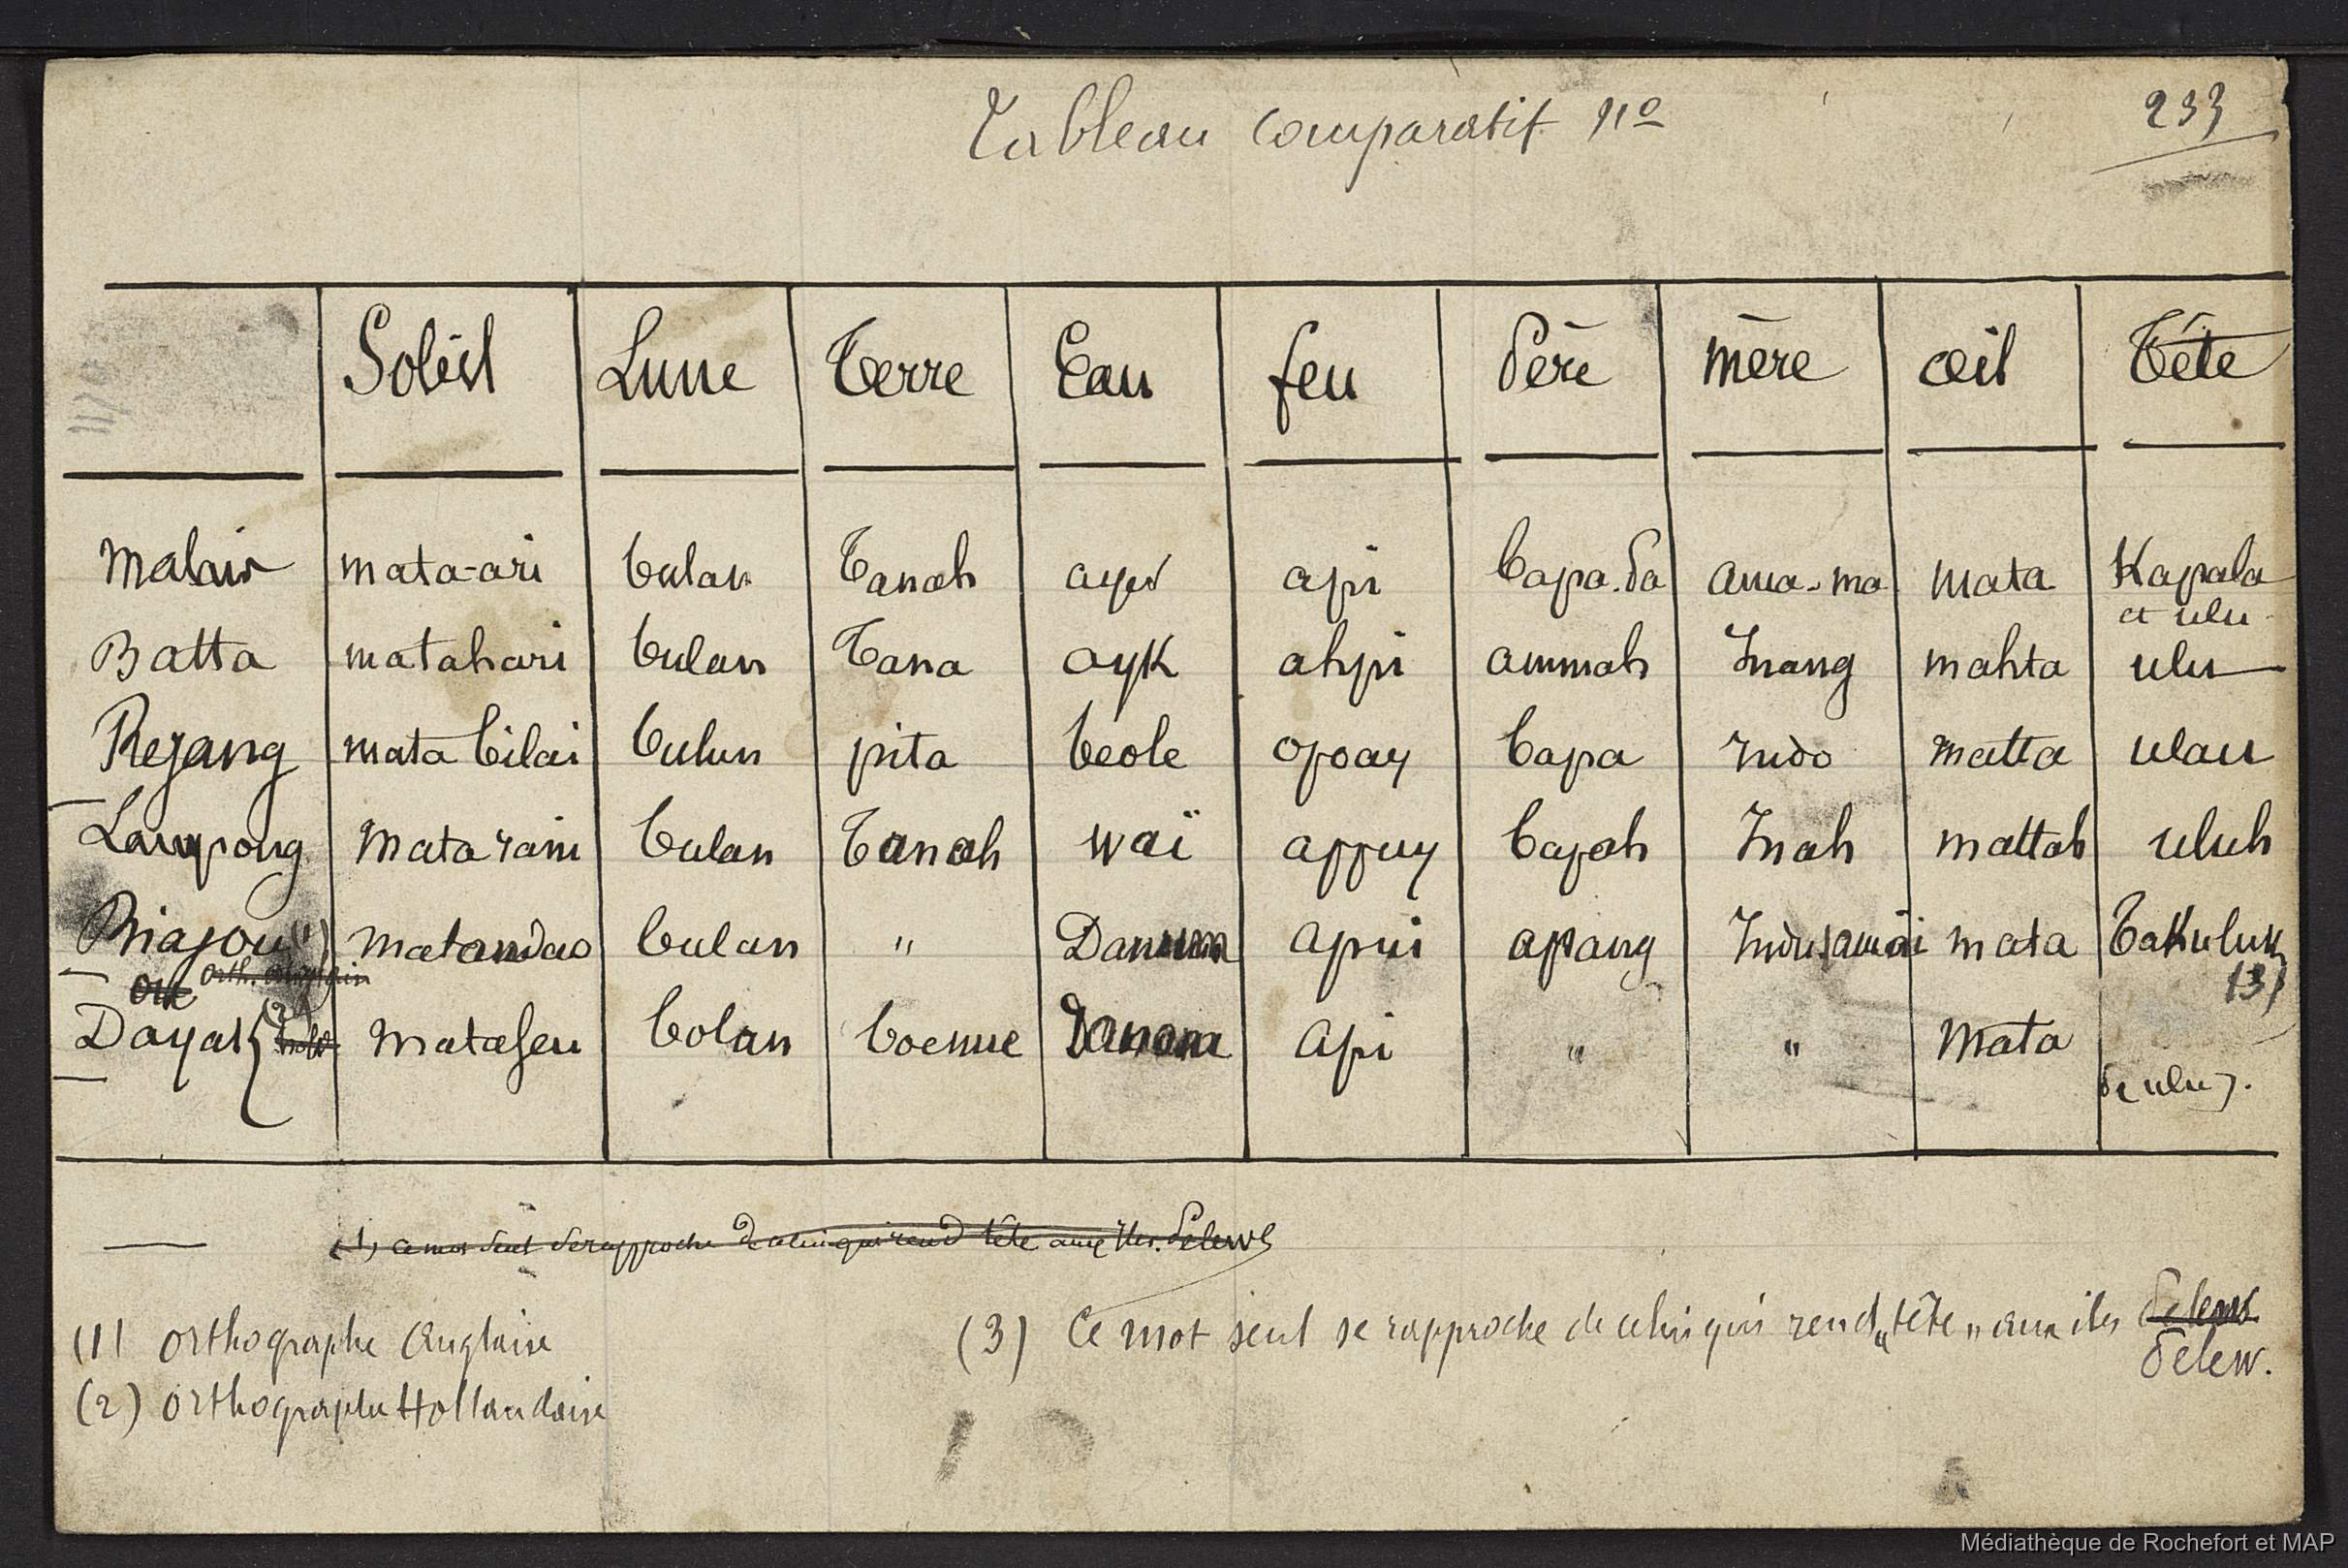 Tableau comparatif nº
233
Soleil Lune Terre Eau feu Père mère œil Tête
Malais mata-ari bulan Tanah ayer api bapa. pa ama-ma mata Kapala
et ulu
Batta matahari bulan Tana ayK ahpi ammah Inang mahta ulu
Rejang mata bilai bulun pita beole opoay bapa Indo matta ulau
Lampong Mata rani bulan Tanah waï appuy bapah Inah mattah uluh
Biajou (1) matandao bulan " Danum apui apang Indu mata TaKuluK
(3)
orth. anglais
ou
Dayak (2) holl. Mataseu bolan boenue Danom api " " Mata
de ulu).
(1) ce mot seul se rapproche de ulu qui rend tête aux Iles. Pelew
(1) Orthographe Anglaise
(3) Ce mot seul se rapproche de ulu qui rend „tête" aux iles Pelew
Pelew.
(2) Orthographe Hollandaise
Médiathèque de Rochefort et MAP